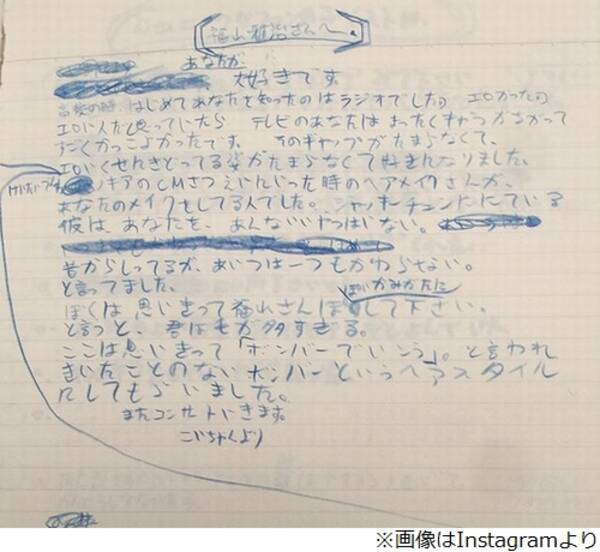 福山雅治さんへ
あなたが、
大好きです。
高校の時、はじめてあなたを知ったのはラジオでした。エロかった。
エロい人だと思っていたら テレビのあなたは まったくキャラがちがって
すごくかっこよかったです。そのギャップがたまらなくて、
エロいくせに きどってる姿がたまらなくて好きになりました。
ノキアのCMさつえいに いった時のヘアメイクさんが、
あなたのメイクをしてる人でした。ジャッキーチェンににている
彼は、あなたを、あんないいやつはいない。
昔からしってるが、あいつは一つもかわらない。
と言ってました。
ぼくは思いきって福山さんぽいかみがたにして下さい。
と言うと、君は毛が多すぎる。
ここは思いきって「ボンバーでいこう」。と言われ
きいたことのない ボンバーというヘアスタイル
にしてもらいました。
またコンサートいきます。
こいちゃくより
※画像はInstagramより